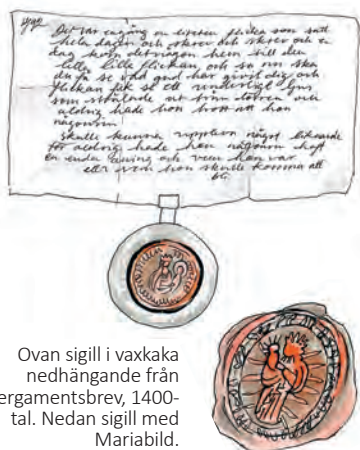 Det var en gång en liten flicka som satt
hela dagen och skrev och skrev och en
dag kom det någon hem till den
lilla lilla flickan och sa nu ska
du få se vad gud har givit dig och
flickan fick se ett underligt ljus
som strålade ut från dörren och
aldrig hade hon trott att hon
någonsin
skulle kunna uppleva något liknande
för aldrig hade hon någonsin haft
en enda aning och vem hon var
eller vem hon skulle komma att
bli
Ovan sigill i vaxkaka
nedhängande från
ergamentsbrev, 1400-
tal. Nedan sigill med
Mariabild.